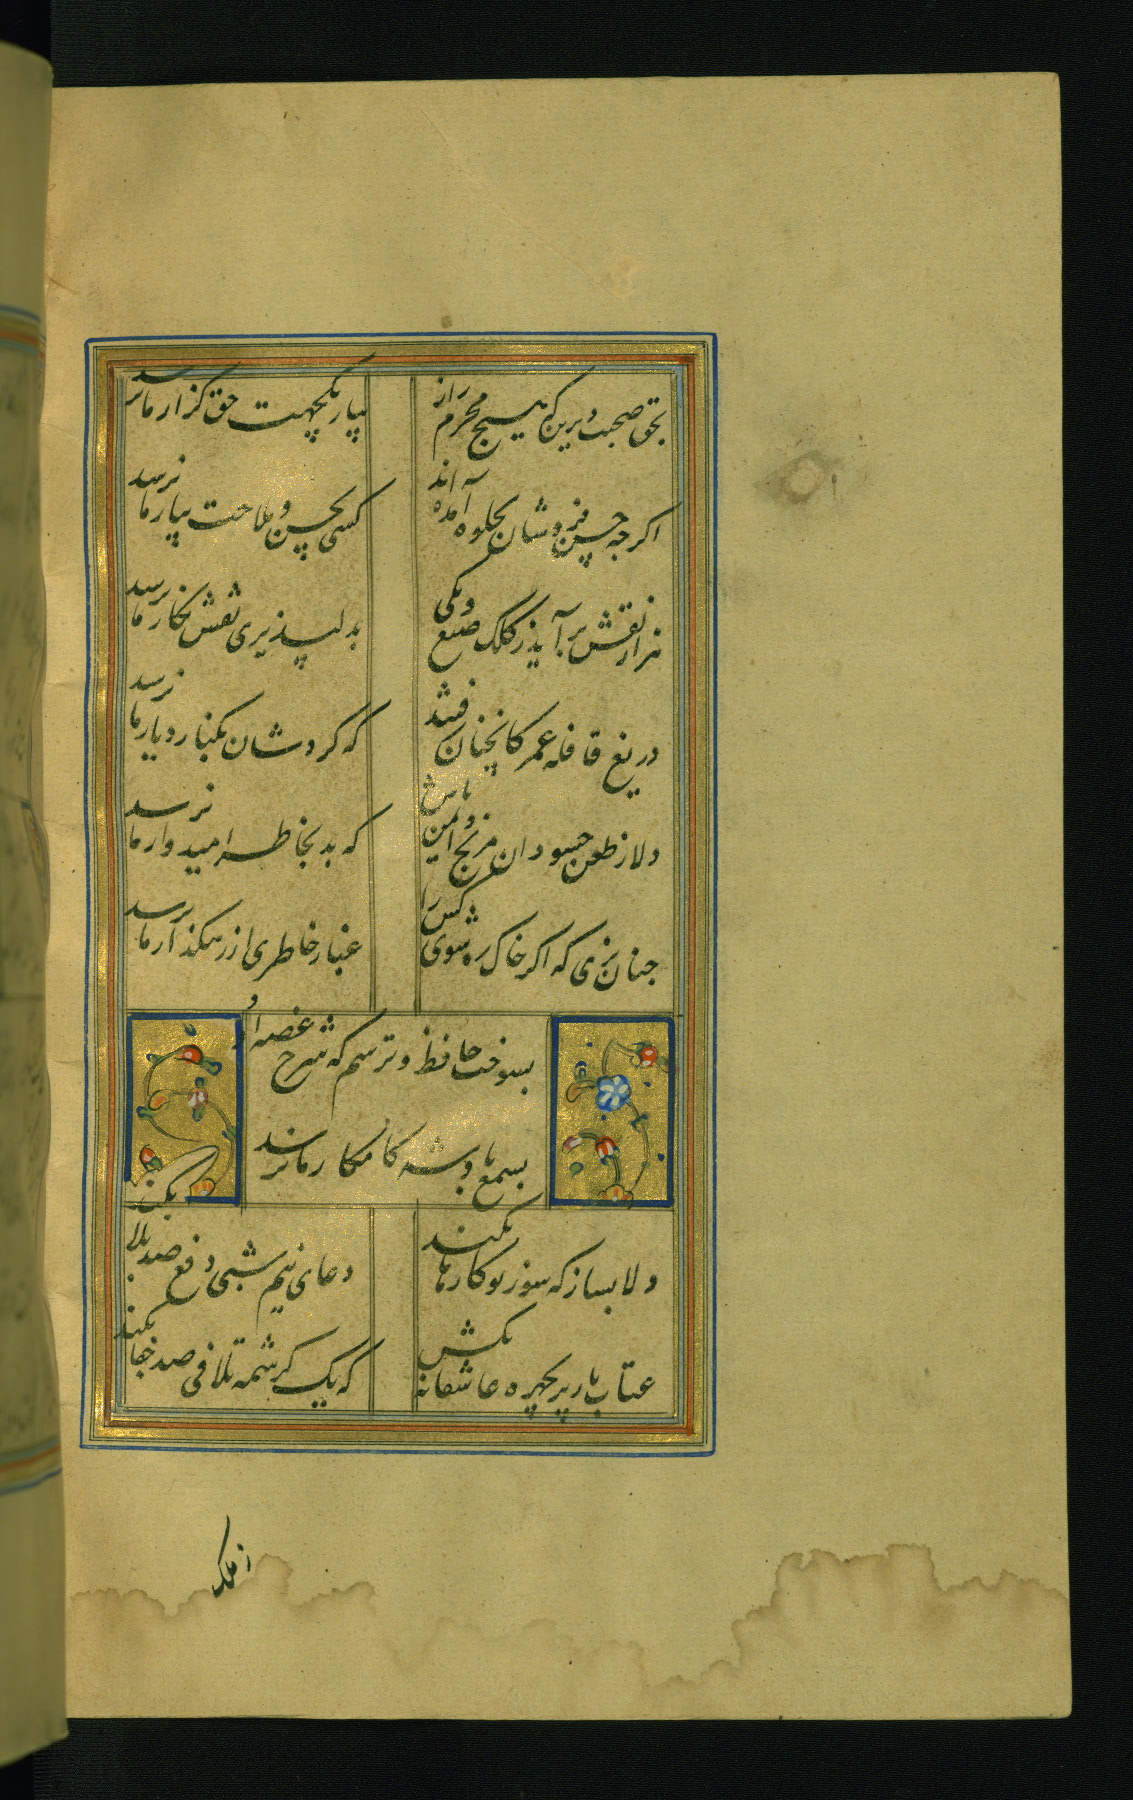 بحق صحبت دیرین که هیچ محرم راز
بیار یکجهت حق گزار ما نرسد
اگرچه حسن فروشان بجلوه آمده اند
کسی بحسن و ملاحت بیار ما نرسد
هزار نقش برآید ز کلک صنع و یکی
بدلپذیری نقش نگار ما نرسد
دریغ قافله عمر کانچنان رفتند
که گردشان بکنار دیار ما نرسد
دلا ز طعن حسودان مرنج و ایمن باش
که بد بخاطر امیدوار ما نرسد
چنان بزی که اگر خاک ره شوی کس را
غبار خاطری از رهگذار ما نرسد
بسوخت حافظ و ترسم که شرح غصه او
بسمع پادشه کامکار ما نرسد
دلا بساز که سوز تو کارها بکند
دعای نیم شبی دفع صد بلا بکند
عتاب یار پریچهره عاشقانه بکش
که یک کرشمه تلافی صد جفا بکند
ز ملک